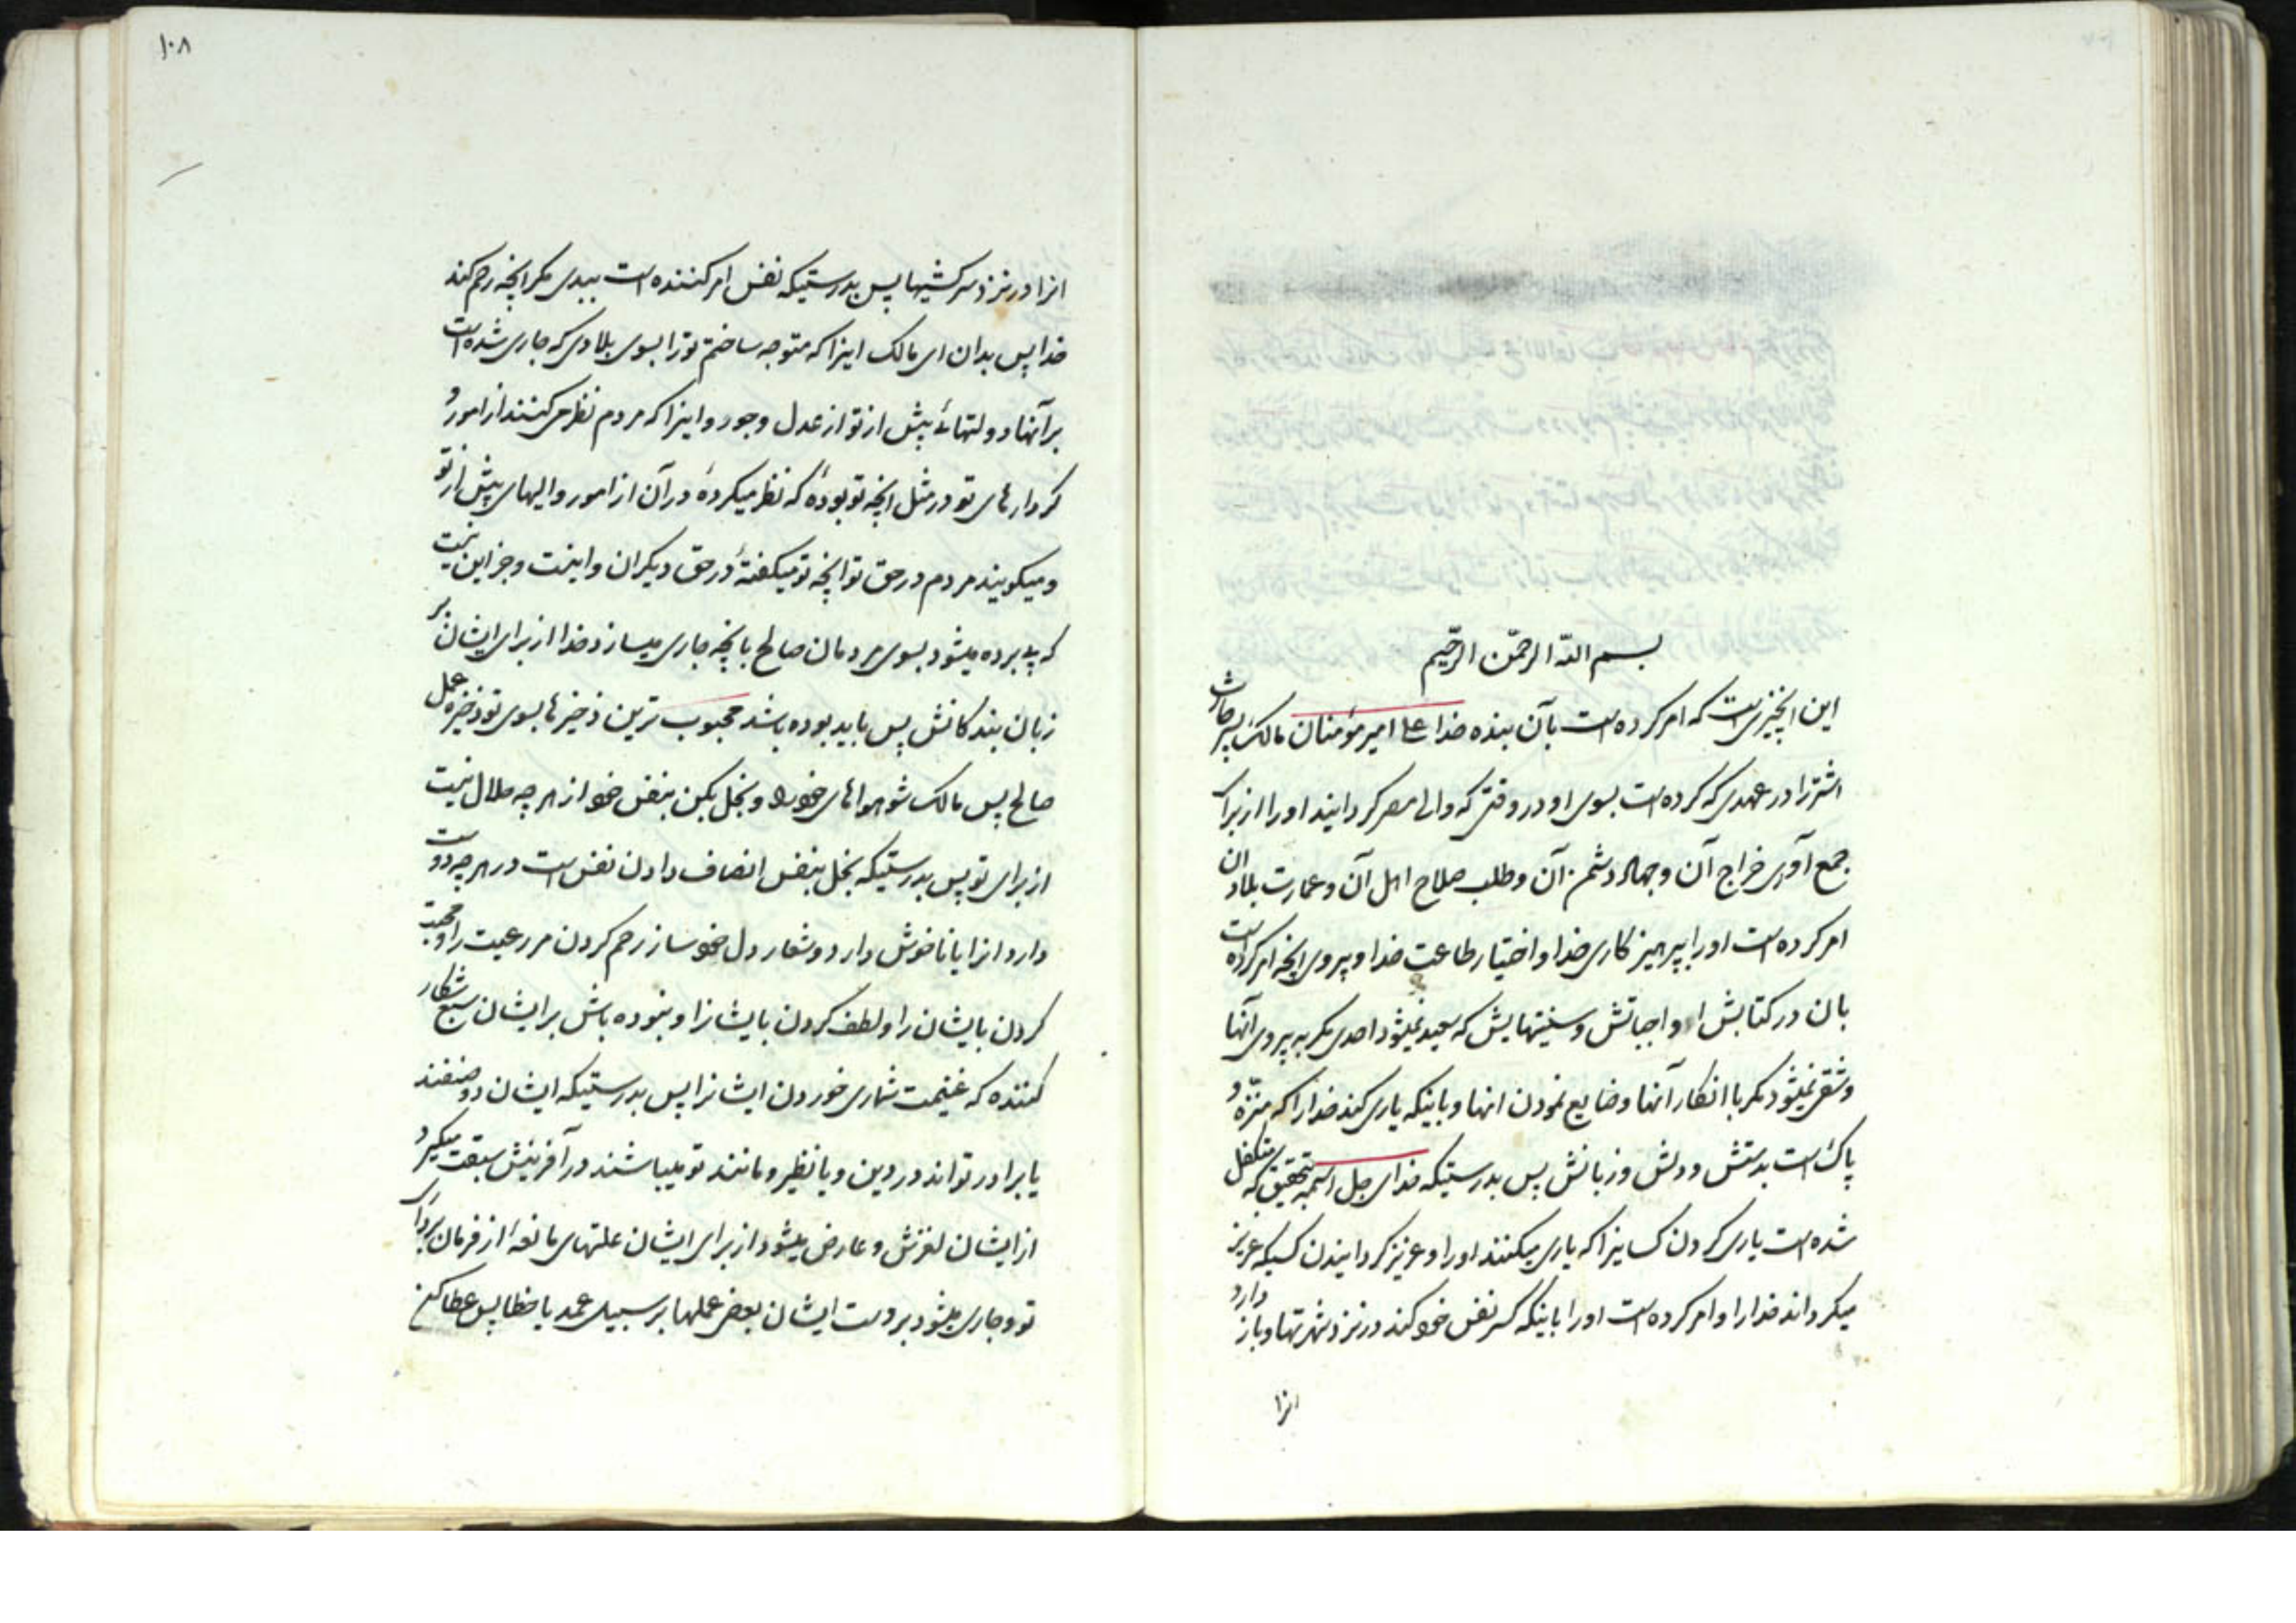 بسم الله الرحمن الرحیم
این انچیزیست که امر کرده است بآن بنده خدا علی امیر مؤمنان مالک پسر حارث
اشتر را در عهدی که کرده است بسوی او در وقتی که والی مصر کردانید او را از برای
جمع آوری خراج آن و جهاد دشمن آن و طلب صلاح اهل آن و عمارت بلاد ان
امر کرده است او را بپرهیزکاری خدا و اختیار طاعت خدا و پیروی انچه امر کرده است
بان در کتابش از واجباتش و سنتهایش که سعید نمیشود احدی مکر به پیروی آنها
و شقی نمیشود مکر با انکار آنها و ضایع نمودن انها و باینکه یاری کند خدا را که منزه و
پاک است بدستش و دلش و زبانش پس بدرستیکه خدای جل اسمه بتحقیق که متکفل
شده است یاری کردن کسانیرا که یاری میکنند او را و عزیز کردانیدن کسیکه عزیز
میکرداند خدا را و امر کرده است او را باینکه کسر نفس خود کند در نزد شهوتها و باز دارد
انرا
۱۰۸
انرا در نزد سرکشیها پس بدرستیکه نفس امر کننده است ببدی مکر انچه رحم کند
خدا پس بدان ای مالک اینرا که متوجه ساختم تو را بسوی بلادی که جاری شده است
بر آنها دولتهائ پیش از تو از عدل و جور و اینرا که مردم نظر میکنند از امور و
کردارهای تو در مثل انچه تو بودهٔ که نظر میکردهٔ در آن از امور والیهای پیش از تو
و میکویند مردم در حق تو انچه تو میکفتهٔ در حق دیکران و اینست و جز این نیست
که پی برده میشود بسوی مردمان صالح بانچه جاری میسازد خدا از برای ایشان بر
زبان بندکانش پس باید بوده باشد محبوب ترین ذخیرها بسوی تو ذخیره عمل
صالح پس مالک شو هواهای خود را و بخل بکن بنفس خود از هر چه حلال نیست
از برای تو پس بدرستیکه بخل بنفس انصاف دادن نفس است در هر چه دوست
دارد انرا یا ناخوش دارد و شعار دل خود ساز رحم کردن مر رعیت را و محبت
کردن بایشان را و لطف کردن بایشانرا و نبوده باش بر ایشان سبع شکار
کننده که غنیمت شماری خوردن ایشانرا پس بدرستیکه ایشان دو صنفند
یا برادر تواند در دین و یا نظیر و مانند تو میباشند در آفرینش سبقت میکیرد
از ایشان لغزش و عارض میشود از برای ایشان علتهای مانعه از فرمان برداری
تو و جاری میشود بر دست ایشان بعض عملها بر سبیل عمد یا خطا پس عطا کن